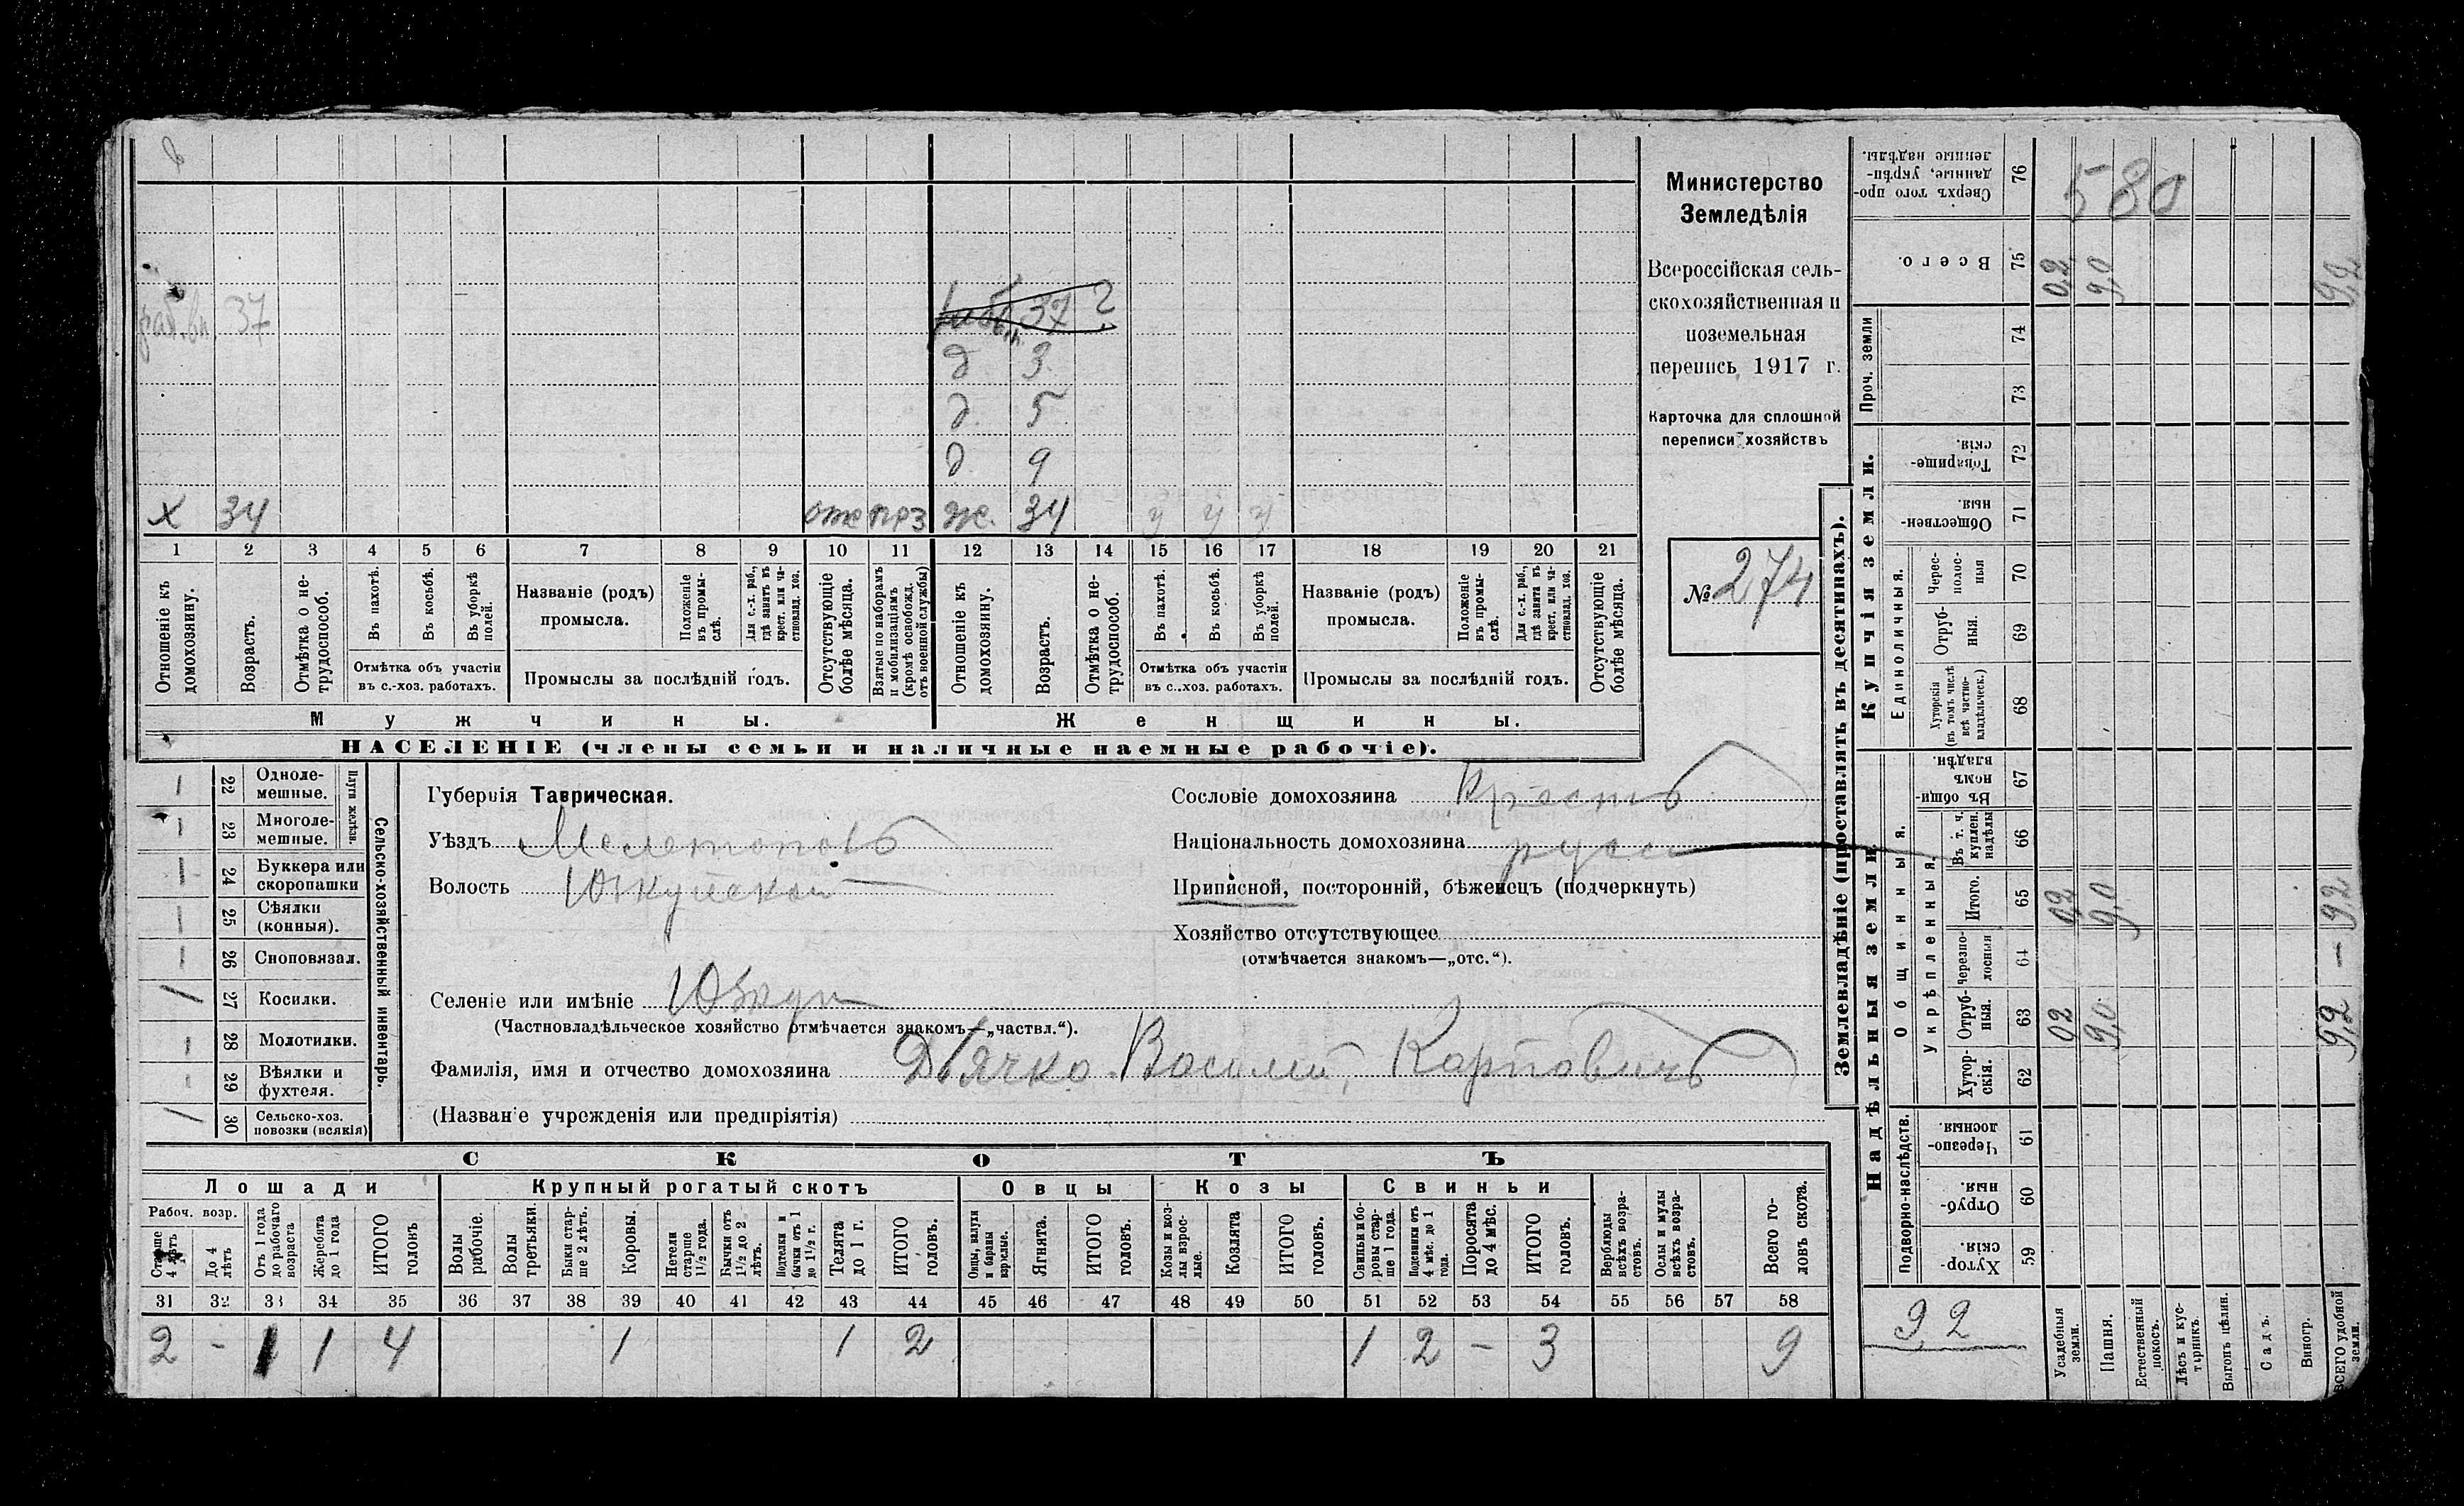 раб. вп. 37
37 ?
д 3
д. 5
д. 9
х 34 отс поз ж. 34 у у у
1 2 3 4 5 6 7 8 9 10 11 12 13 14 15 16 17 18 19 20 21
Отношеніе къ домохозяину.
Возрастъ.
Отмѣтка о нетрудоспособ.
Въ пахотѣ.
Въ косьбѣ.
Въ уборкѣ полей.
Отмѣтка объ участіи
въ с.-хоз. работахъ.
Названіе (родъ)
промысла.
Положеніе въ промыслѣ.
Для с.-х. раб., гдѣ занятъ въ крест. или частновлад. хоз.
Промыслы за послѣдній годъ.
Отсутствующіе болѣе мѣсяца.
Взятые по наборамъ и мобилизаціямъ (кромѣ освобожд. отъ военной службы)
Отношеніе къ домохозяину.
Возрастъ.
Отмѣтка о нетрудоспособ.
Въ пахотѣ.
Въ косьбѣ.
Въ уборкѣ полей.
Отмѣтка объ участіи
въ с.-хоз. работахъ.
Названіе (родъ)
промысла.
Положеніе въ промыслѣ.
Для с.-х. раб., гдѣ занята въ крест. или частновлад. хоз.
Промыслы за послѣдній годъ.
Отсутствующіе болѣе мѣсяца.
Мужчины. Женщины.
НАСЕЛЕНІЕ (члены семьи и наличные наемные рабочіе).
Министерство
Земледѣлія
Всероссійская сель-
скохозяйственная и
поземельная
перепись 1917 г.
Карточка для сплошной
переписи хозяйствъ
№ 274
Сельско-хозяйственный инвентарь.
Плуги желѣзн.
22 Одноле-
мешные.
23 Многоле-
мешные.
24 Буккера или
скоропашки
25 Сѣялки
(конныя).
26 Сноповязал.
27 Косилки.
28 Молотилки.
29 Вѣялки и
фухтеля.
30 Сельско-хоз.
повозки (всякія)
Губернія Таврическая.
Уѣздъ Мелетополь
Волость Юзкуйской
Селеніе или имѣніе Юзкуи
(Частновладѣльческое хозяйство отмѣчается знакомъ—„частвл.“).
Фамилія, имя и отчество домохозяина Дьячко Василій Карповичъ
(Названіе учрежденія или предпріятія)
Сословіе домохозяина Крестъ
Національность домохозяина русс
Приписной, посторонній, бѣженецъ (подчеркнуть)
Хозяйство отсутствующее
(отмѣчается знакомъ—„отс.“).
СКОТЪ
Лошади Крупный рогатый скотъ Овцы Козы Свиньи
Рабоч. возр.
Старше 4 лѣтъ
До 4 лѣтъ
Отъ 1 года до рабочаго возраста
Жеребята до 1 года
ИТОГО головъ
Волы рабочіе.
Волы третьяки.
Быки старше 2 лѣтъ.
Коровы.
Нетели старше 1½ года.
Бычки отъ 1½ до 2 лѣтъ.
Подтелки и бычки отъ 1 до 1½ г.
Телята до 1 г.
ИТОГО головъ.
Овцы, валухи и бараны взрослые.
Ягнята.
ИТОГО головъ.
Козы и козлы взрослые.
Козлята
ИТОГО головъ.
Свиньи и боровы старше 1 года.
Подсвинки отъ 4 мѣс. до 1 года.
Поросята до 4 мѣс.
ИТОГО головъ.
Верблюды всѣхъ возрастовъ.
Ослы и мулы всѣхъ возрастовъ.
Всего головъ скота.
31 32 33 34 35 36 37 38 39 40 41 42 43 44 45 46 47 48 49 50 51 52 53 54 55 56 57 58
2 - 1 1 4 1 1 2 1 2 - 3 9
Землевладѣніе (проставлять въ десятинахъ).
Купчія земли.
Надѣльныя земли.
Проч. земли
Единоличныя.
Общинныя.
Укрѣпленныя.
Подворно-наслѣдств.
Сверхъ того проданные, укрѣпленные надѣлы. 76 580
Всего. 75 0,2 9,0 9,2
74
73
Товарищескія. 72
Общественныя 71
Чересполосныя 70
Отрубныя. 69
Хуторскія (въ томъ числѣ всѣ частновладѣльческ.) 68
Въ общинномъ владѣн. 67
Въ т. ч. куплен. надѣлы 66
Итого. 65 0,2 9,0 9,2
Черезполосныя 64 -
Отрубныя. 63 02 9,0 9,2
Хуторскія. 62
Черезполосныя. 61
Отрубныя. 60
Хуторскія. 59
9,2
Усадебныя земли.
Пашня.
Естественный покосъ.
Лѣсъ и кустарникъ.
Выгонъ цѣлин.
Садъ.
Виногр.
ВСЕГО удобной земли.